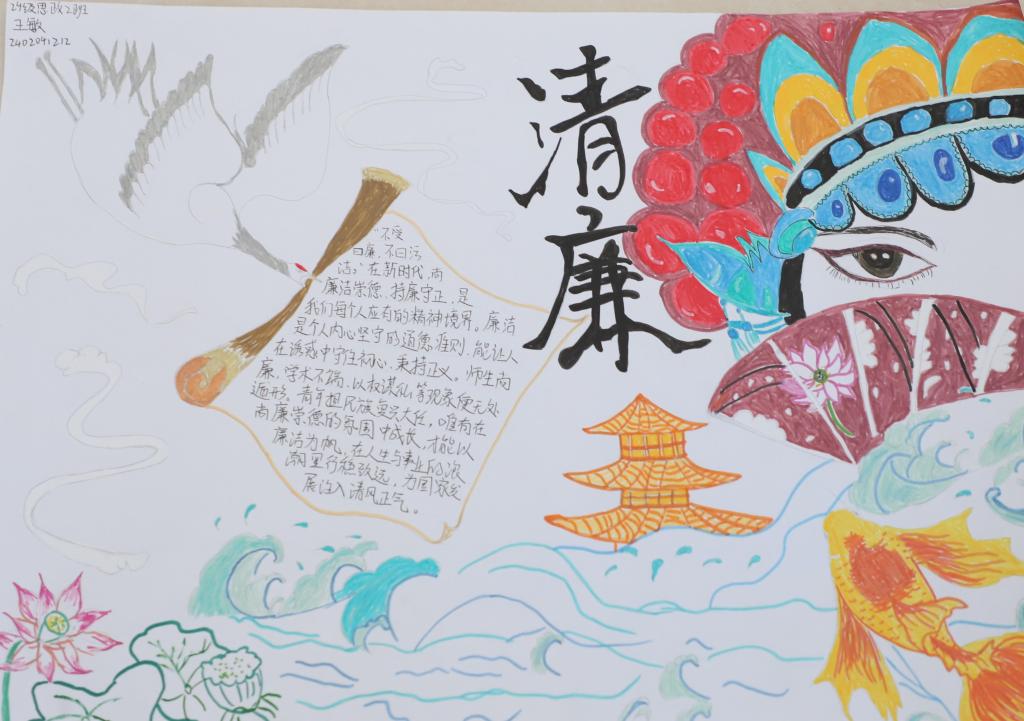 24级思政2班
王敏
2402091212
清廉
“不受
曰廉,不曰污
洁。”在新时代,尚
廉洁崇德、持廉守正,是
我们每个人应有的精神境界。廉洁
是个人内心坚守的道德准则,能让人
在诱惑中守住初心、秉持正义。师生尚
廉,学术不端、以权谋私等现象便无处
遁形。青年担民族复兴大任,唯有在
尚廉崇德的氛围中成长,才能以
廉洁为帆,在人生与事业的浪
潮里行稳致远,为国家发
展注入清风正气。